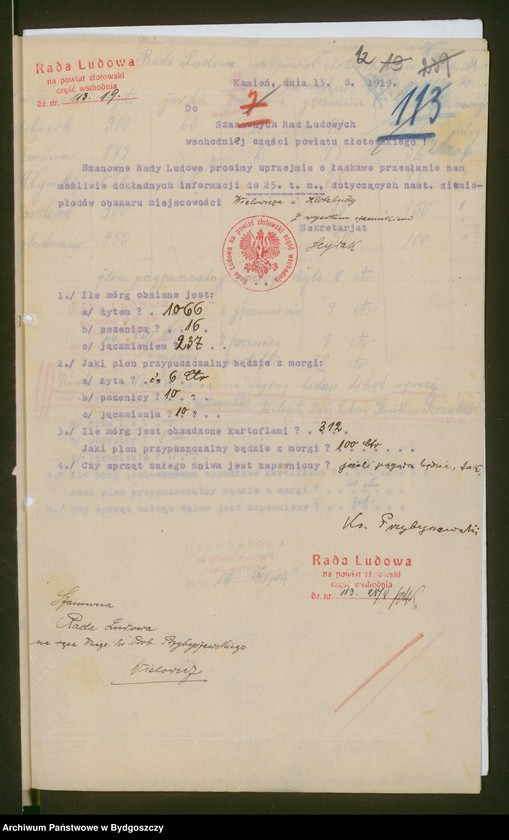 12 19 239
Rada Ludowa
na powiat złotowski
część wschodnia
dz. nr. 113. 19.
Kamień, dnia 13. 8. 1919.
7
113
Do
Szanownych Rad Ludowych
wschodniej części powiatu złotowskiego.
Szanowne Rady Ludowe prosimy uprzejmie o łaskawe przesłanie nam
możliwie dokładnych informacji do 25. t. m., dotyczących nast. ziemio-
płodów obszaru miejscowości Wielowicza i
Z wysokim szacunkiem
Sekretarjat
Rada Ludowa na powiat złotowski część wschodnia
1./ Ile mórg obsiane jest:
a/ żytem ? . 1066
b/ pszenicą ? . 16.
c/ jęczmieniem ? 237 . .
2./ Jaki plon przypuszczalny będzie z morgi:
a/ żyta ? . 6 Ctr
b/ pszenicy ? 10 " . .
c/ jęczmienia ? 10 " . .
3./ Ile mórg jest obsadzone kartoflami ? . 312.
Jaki plon przypuszczalny będzie z morgi ? 100 Ctr . . .
4./ Czy sprzęt całego żniwa jest zapewniony ? jeżeli pogoda będzie, tak.
Ks. Przybyszewski
Rada Ludowa
na powiat złotowski
część wschodnia
dz. nr. 113. 28/8
Szanowna
Rada Ludowa
na ręce Ks. Prob. Przybyszewskiego
Archiwum Państwowe w Bydgoszczy